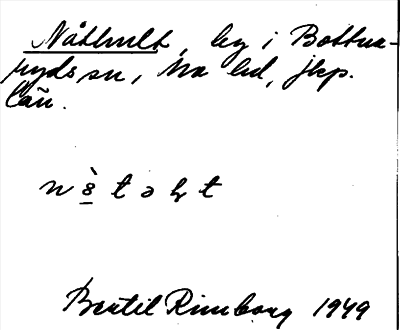 Nåthult, by i Bottna-
ryds sn, Mo hd, Jkp.
län.
Bertil Rimborg 1949